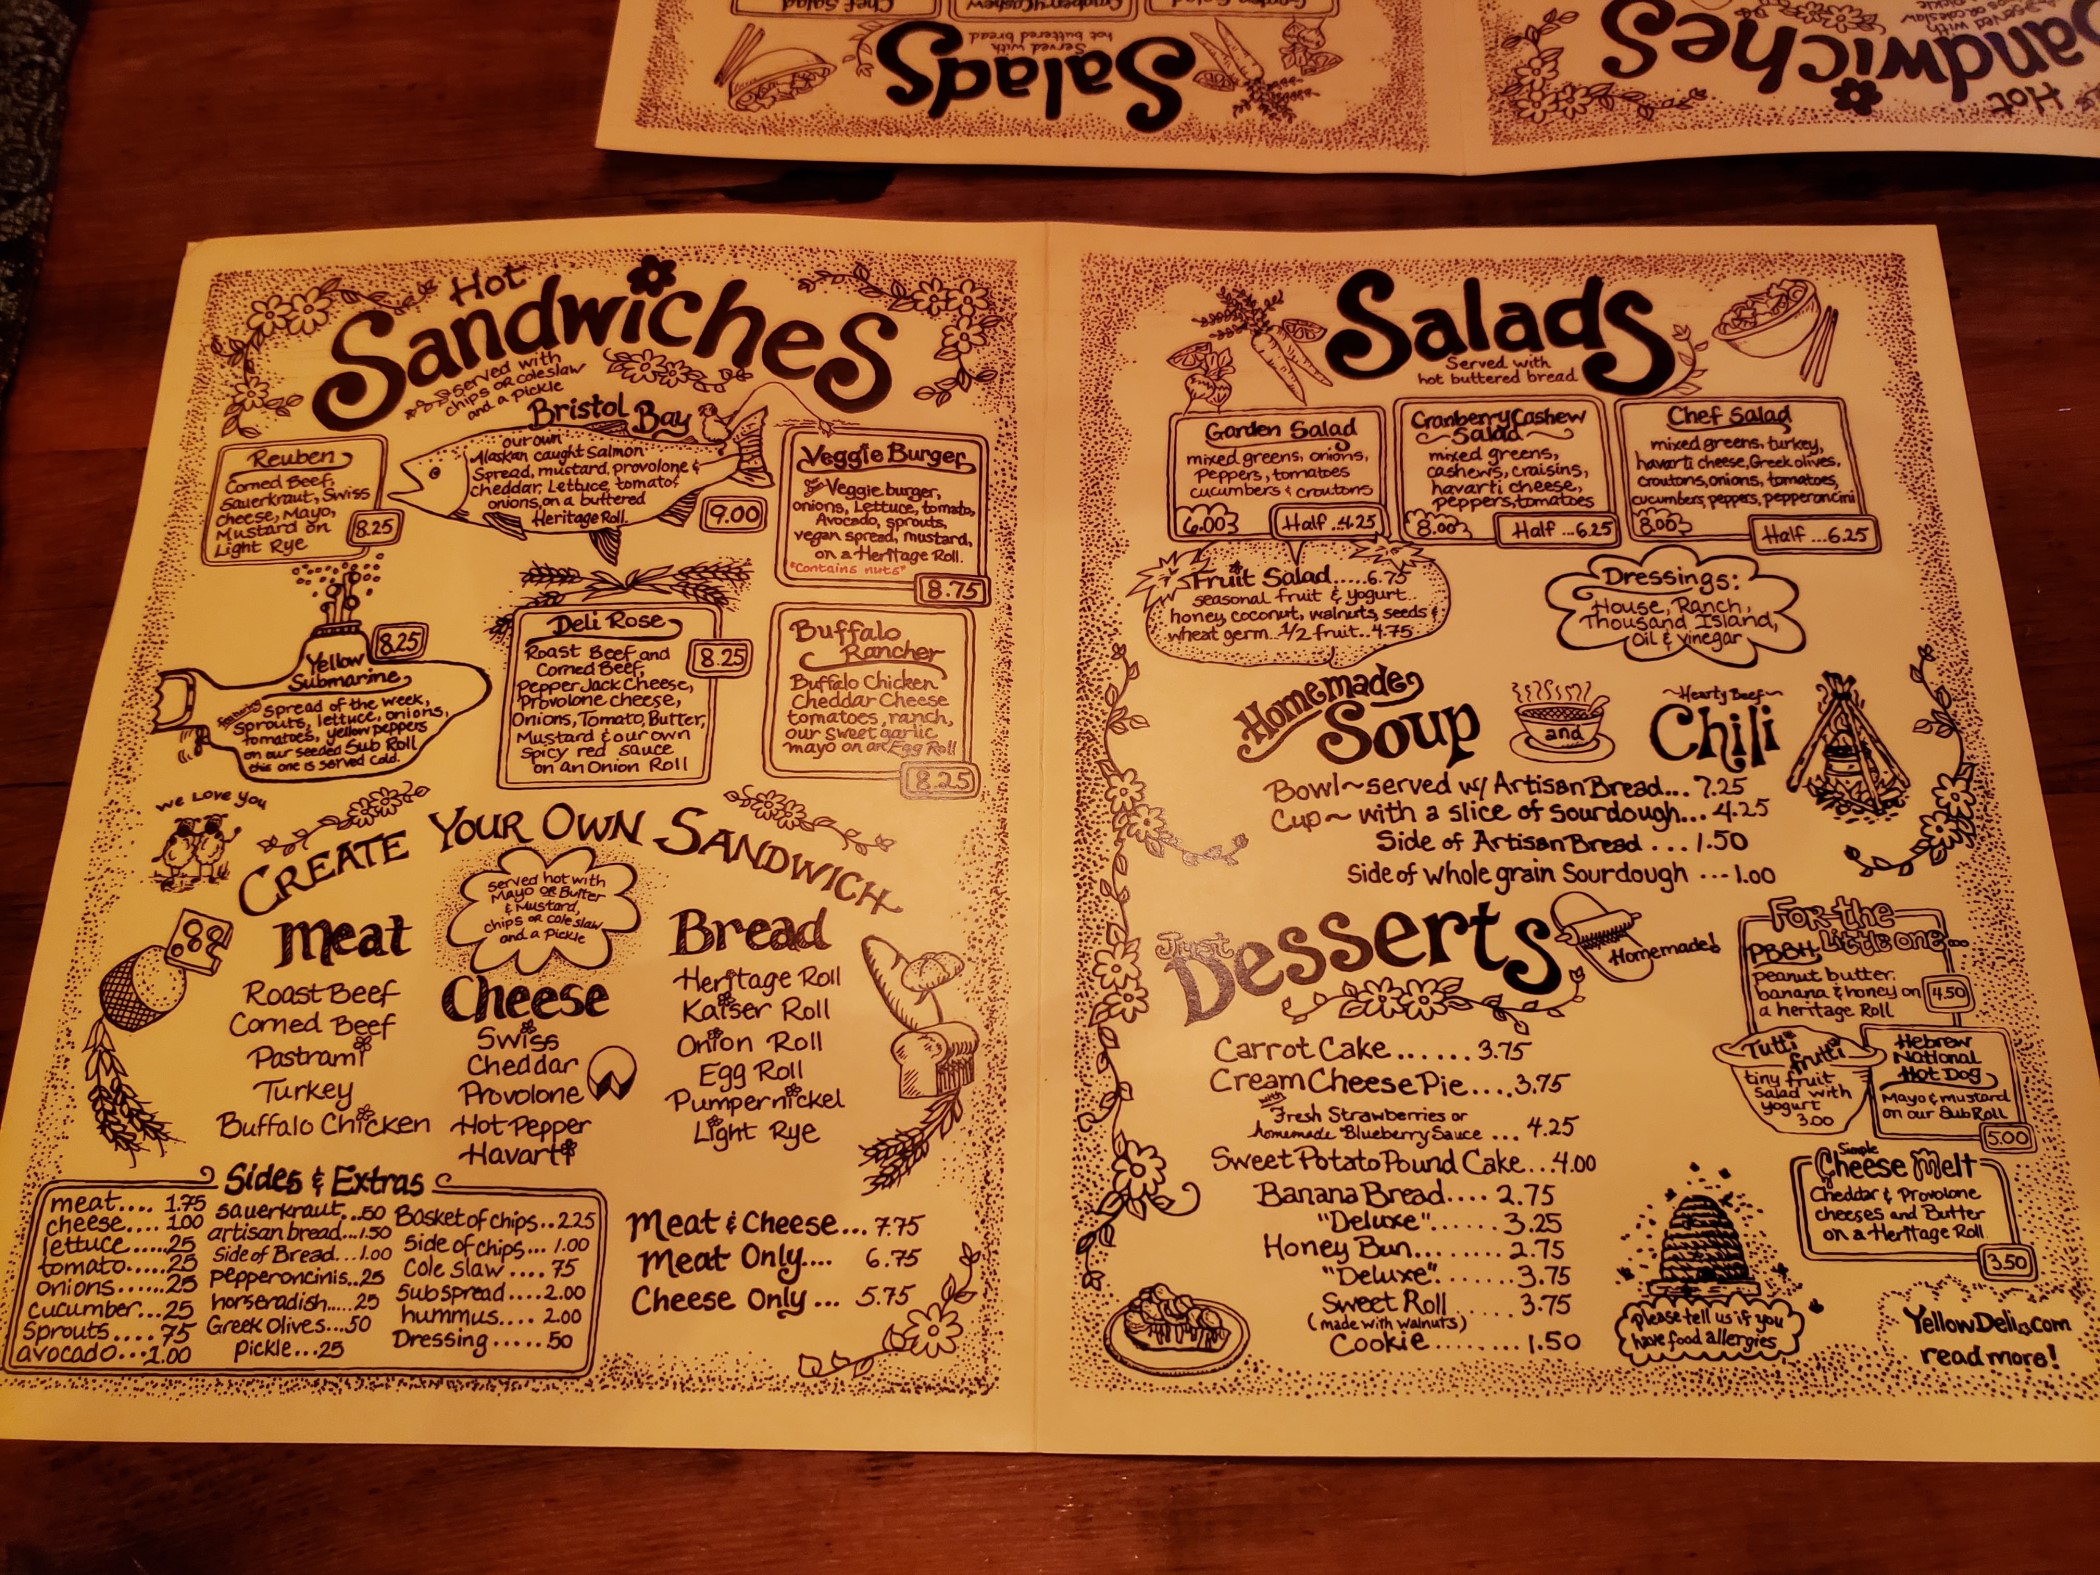 Salads
Served with
hot buttered bread
Garden Salad
Cranberry Cashew
Chef Salad
Hot
Sandwiches
Hot
Sandwiches
served with
chips or coleslaw
and a pickle
Reuben
Corned Beef,
Sauerkraut, Swiss
Cheese, Mayo,
Mustard on
Light Rye
8.25
Bristol Bay
our own
Alaskan caught Salmon
Spread, mustard, provolone &
cheddar, Lettuce, tomato,
onions, on a buttered
Heritage Roll.
9.00
Veggie Burger
Veggie burger,
onions, Lettuce, tomato,
Avocado, sprouts,
vegan spread, mustard,
on a Heritage Roll.
"Contains nuts"
8.75
Yellow
Submarine
8.25
featuring Spread of the week,
Sprouts, lettuce, onions,
tomatoes, yellow peppers
on our seeded Sub Roll
this one is served cold.
Deli Rose
8.25
Roast Beef and
Corned Beef,
Pepper Jack Cheese,
Provolone cheese,
Onions, Tomato, Butter,
Mustard & our own
Spicy red sauce
on an Onion Roll
Buffalo
Rancher
Buffalo Chicken
Cheddar Cheese
tomatoes, ranch,
our sweet garlic
mayo on an Egg Roll
8.25
We Love You
CREATE YOUR OWN SANDWICH
served hot with
Mayo or Butter
& Mustard,
chips or cole slaw
and a pickle
Meat
Roast Beef
Corned Beef
Pastrami
Turkey
Buffalo Chicken
Cheese
Swiss
Cheddar
Provolone
Hot Pepper
Havarti
Bread
Heritage Roll
Kaiser Roll
Onion Roll
Egg Roll
Pumpernickel
Light Rye
Sides & Extras
meat.... 1.75
cheese.... 1.00
lettuce......25
tomato......25
onions......25
cucumber...25
Sprouts.... 75
avocado...1.00
sauerkraut...50
artisan bread...1.50
Side of Bread...1.00
pepperoncinis..25
horseradish.....25
Greek Olives...50
pickle...25
Basket of chips..2.25
Side of chips... 1.00
Cole Slaw .... 75
Sub spread....2.00
hummus.... 2.00
Dressing......50
Meat & Cheese... 7.75
Meat Only.... 6.75
Cheese Only ... 5.75
Salads
Served with
hot buttered bread
Garden Salad
mixed greens, onions,
Peppers, tomatoes
cucumbers & croutons
6.00
Half ..4.25
Cranberry Cashew
Salad
mixed greens,
cashews, craisins,
havarti cheese,
peppers, tomatoes
8.00
Half ...6.25
Chef Salad
mixed greens, turkey,
havarti cheese, Greek olives,
croutons, onions, tomatoes,
cucumbers, peppers, pepperoncini
8.00
Half ...6.25
Fruit Salad.....6.75
seasonal fruit & yogurt..
honey, coconut, walnuts, seeds &
wheat germ..1/2 fruit..4.75
Dressings:
House, Ranch,
Thousand Island,
Oil & vinegar
Homemade
Soup
and
~Hearty Beef~
Chili
Bowl~served w/ Artisan Bread... 7.25
Cup~ with a slice of sourdough... 4.25
Side of Artisan Bread ... 1.50
Side of whole grain Sourdough ... 1.00
Just
Desserts
Homemade!
Carrot Cake ...... 3.75
Cream Cheese Pie....3.75
with
Fresh Strawberries or
homemade Blueberry Sauce ... 4.25
Sweet Potato Pound Cake...4.00
Banana Bread.... 2.75
"Deluxe"....... 3.25
Honey Bun........ 2.75
"Deluxe"........3.75
Sweet Roll ......3.75
(made with walnuts)
Cookie........1.50
For the
Little one...
PBBH
peanut butter,
banana & honey on
a heritage Roll
4.50
Tutti
frutti
tiny fruit
salad with
yogurt
3.00
Hebrew
National
Hot Dog
Mayo & mustard
on our Sub Roll
5.00
Simple
Cheese Melt
Cheddar & Provolone
cheeses and Butter
on a Heritage Roll
3.50
please tell us if you
have food allergies
YellowDeli.com
read more!